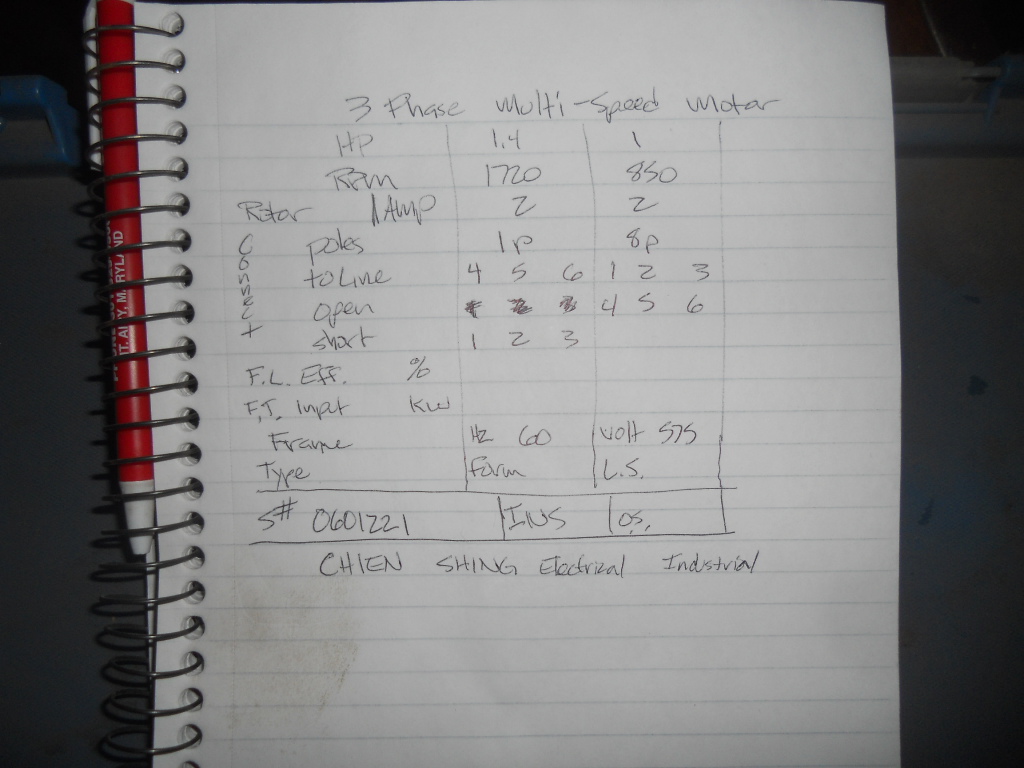 3 Phase Multi-Speed Motor
HP 1.4 1
RPM 1720 850
Rotor /Amp 2 2
Connect
poles 1p 8p
to Line 4 5 6 1 2 3
open 4 5 6
short 1 2 3
F.L. Eff. %
F.T. Input KW
Frame Hz 60 volt 575
Type Form L.S.
S# 0601221 INS O.S.
CHIEN SHING Electrical Industrial
MARYLAND